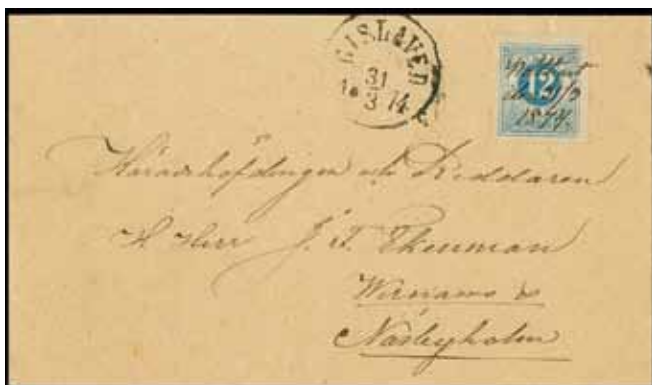 GISLAVED
31
3 74
12
1874.
Häradshöfdingen och Riddaren
H Herr J. T. Ekenman
Wernamo &
Näsbyholm